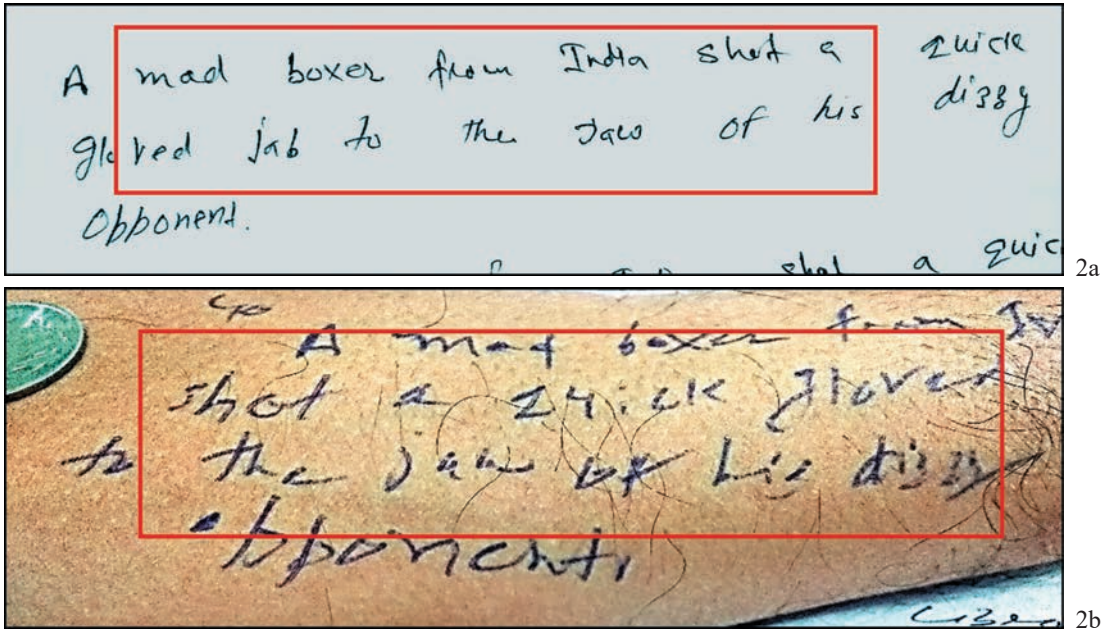 A mad boxer from India shot a quick
gloved jab to the Jaw of his dizzy
opponent.
shot a quic
2a
A mad boxer from In
shot a quick gloved
to the jaw of his dizzy
opponent,
2b